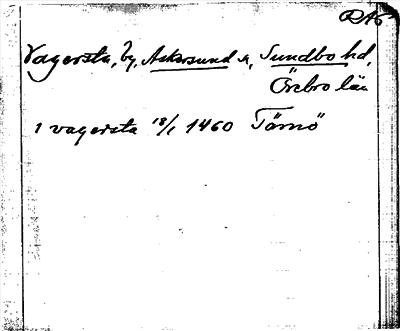 RAÖ
Vagersta, by, Askersund s, Sundbo hd,
Örebro län
1 vagersta 18/1 1460 Tärnö